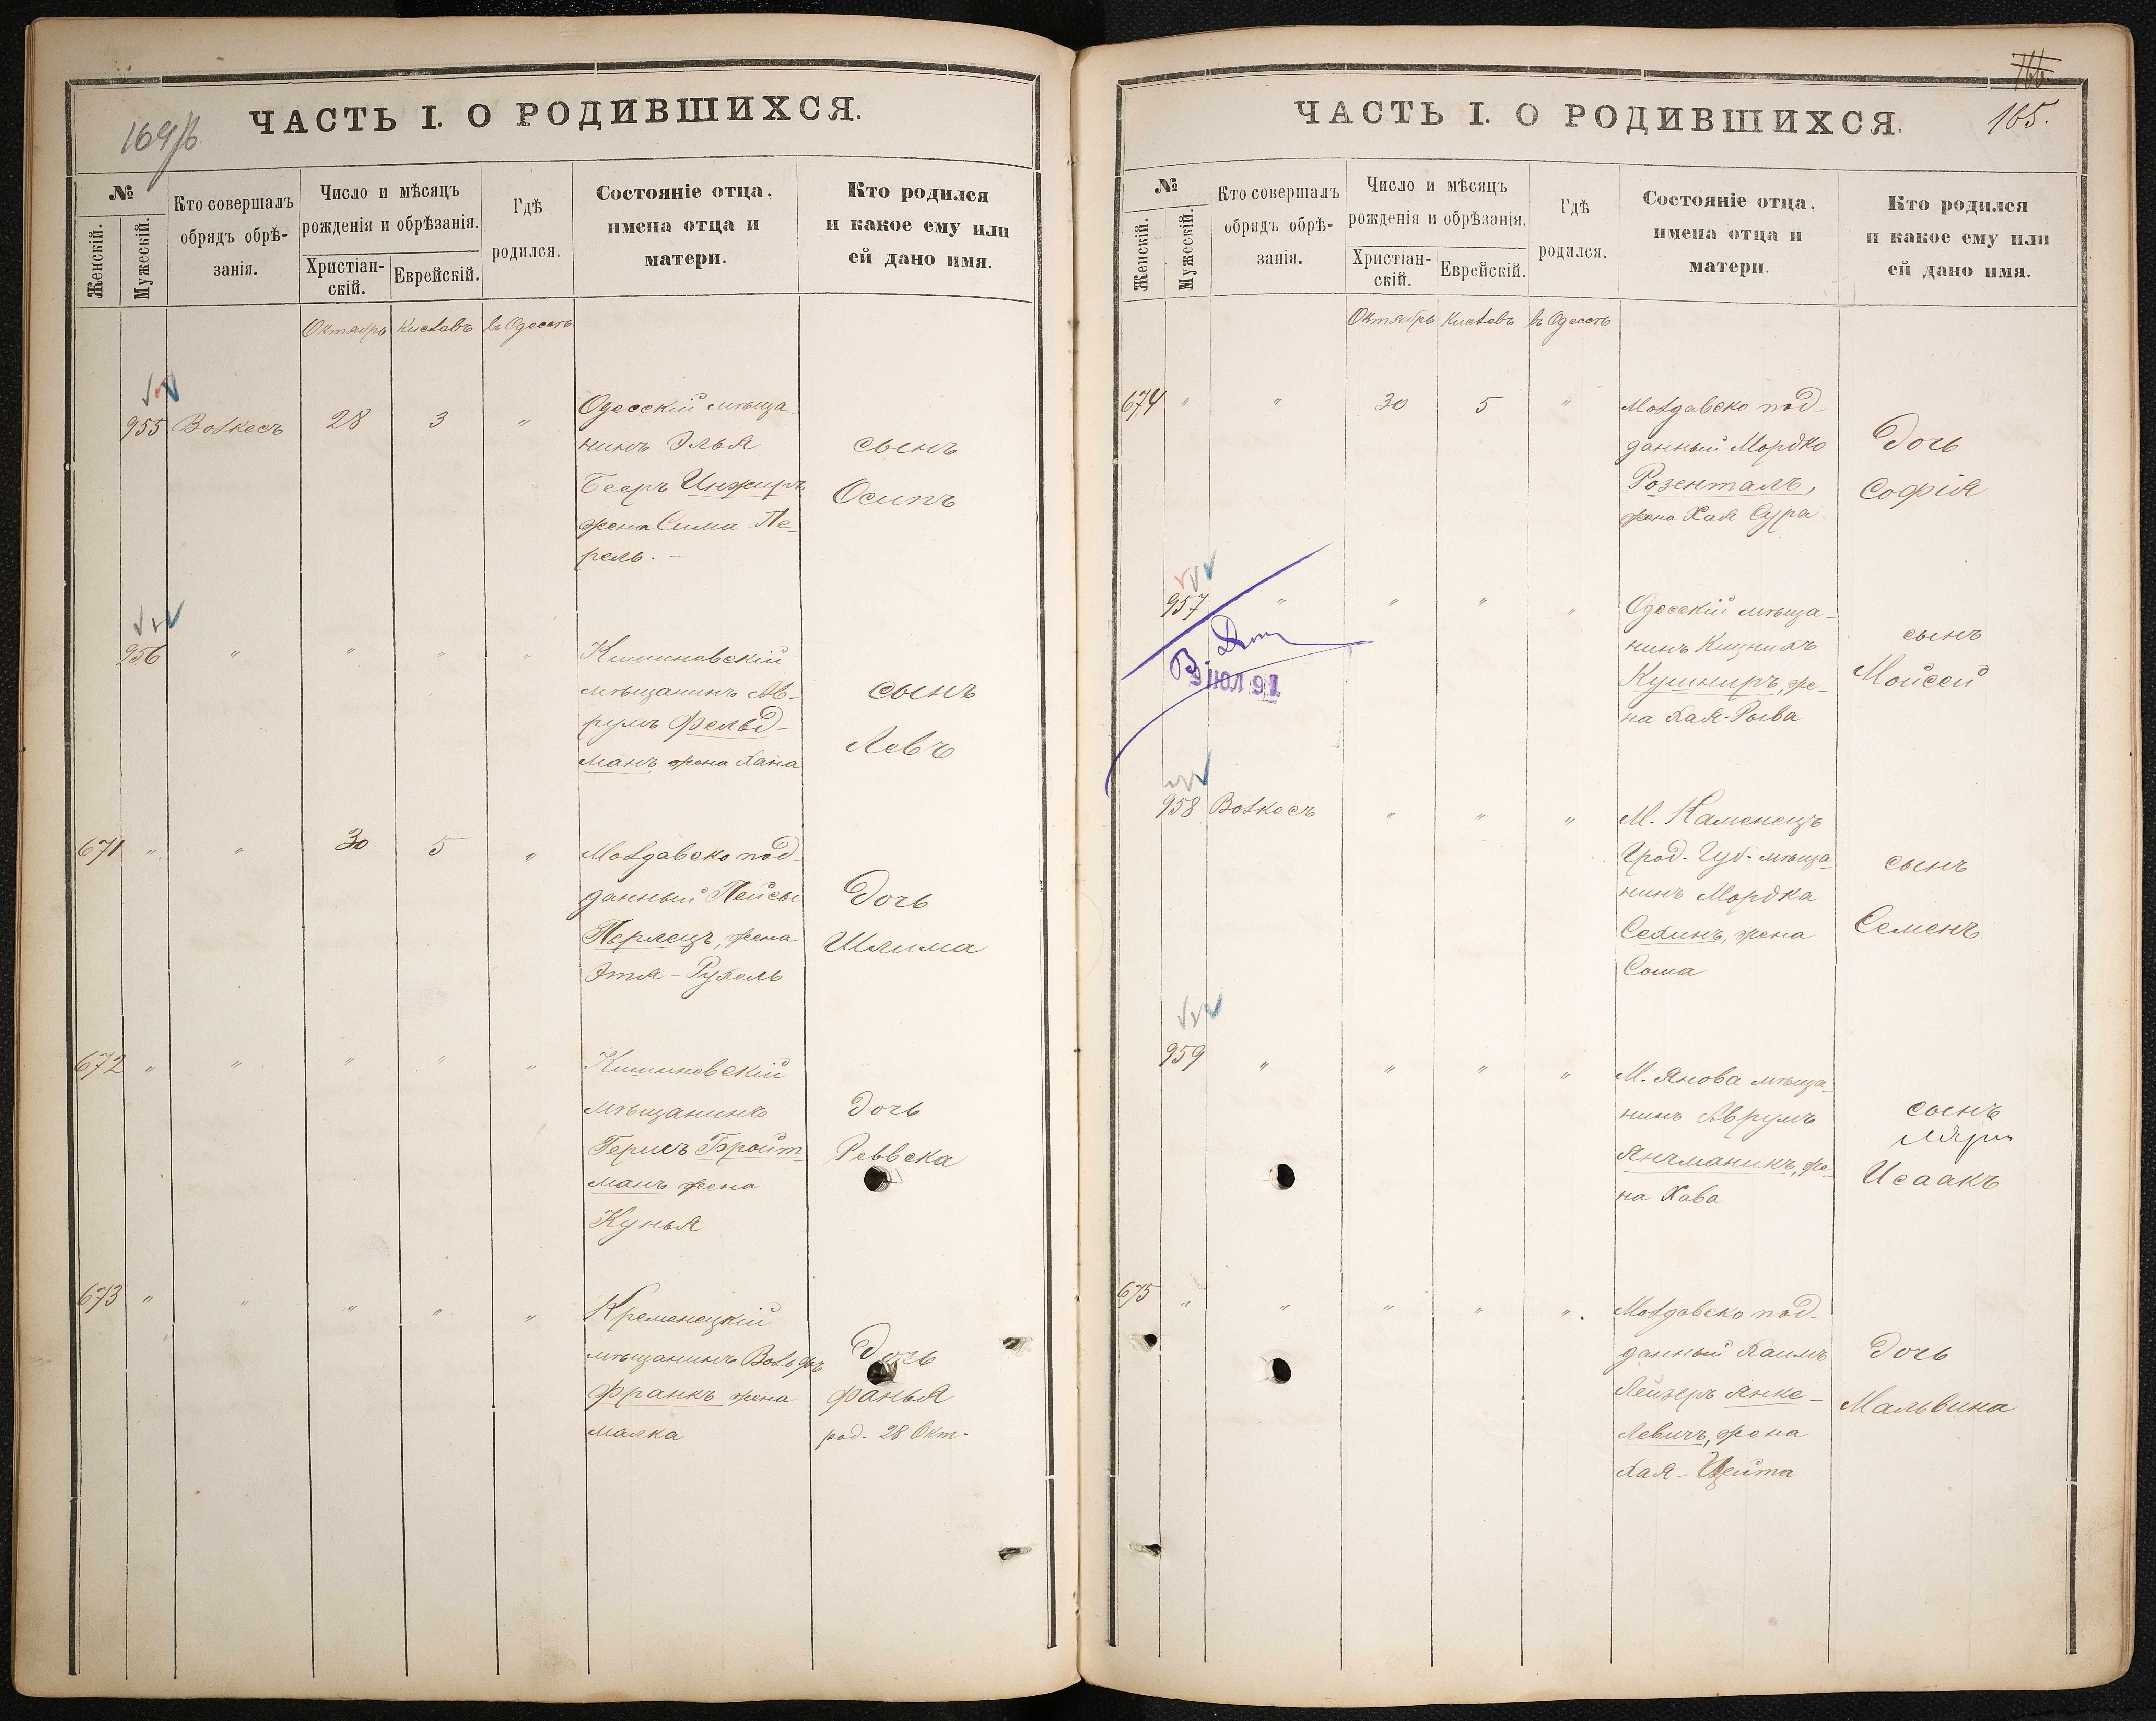 ЧАСТЬ I. О РОДИВШИХСЯ.
№
Женскій.
Мужескій.
Кто совершалъ
обрядъ обрѣ-
занія.
Число и мѣсяцъ
рожденія и обрѣзанія.
Христіан-
скій.
Еврейскій.
Гдѣ
родился.
Состояніе отца,
имена отца и
матери.
Кто родился
и какое ему или
ей дано имя.
Октябрь Кислевъ въ Одессѣ
955 Волкесъ 28 3 "
Одесскій мѣща-
нинъ Элья
Беръ Инжиръ
жена Сима Пе-
рель. -
сынъ
Осипъ
956 " " " "
Кишиневскій
мѣщанинъ Ав-
румъ Фельд-
манъ жена Хана
сынъ
Левъ
671 " " 30 5 "
Молдавско под-
данный Пейсы
Перлецъ, жена
Этя - Рухель
Дочь
Шлима
672 " " " " "
Кишиневскій
мѣщанинъ
Гершъ Бройт-
манъ жена
Кунья
дочь
Реввека
673 " " " " "
Кременецкій
мѣщанинъ Вольфъ
Франкъ жена
малка
Дочь
Фанья
род. 28 Окт.
ЧАСТЬ I. О РОДИВШИХСЯ.
165.
№
Женскій.
Мужескій.
Кто совершалъ
обрядъ обрѣ-
занія.
Число и мѣсяцъ
рожденія и обрѣзанія.
Христіан-
скій.
Еврейскій.
Гдѣ
родился.
Состояніе отца,
имена отца и
матери.
Кто родился
и какое ему или
ей дано имя.
Октябрь Кислевъ въ Одессѣ
674 " " 30 5 "
Молдавско под-
данный Мордко
Розенталъ,
жена Хая Сура
Дочь
Софія
957 " " " "
Одесскій мѣща-
нинъ
Кушниръ, же-
на Хая-Рыва
сынъ
Мойсей
9 ИЮЛ 91
958 Волкесъ " " "
М. Каменецъ
Грод. Губ. мѣща-
нинъ Мордка
жена
Соша
сынъ
Семенъ
959 " " " "
М. Янова мѣща-
нинъ Аврумъ
Янчманикъ, же-
на Хава
сынъ
Исаакъ
675 " " " " ".
Молдавско под-
данный Хаимъ
Лейзеръ Янке-
левичъ, жена
Хая - Цейта
Дочь
Мальвина